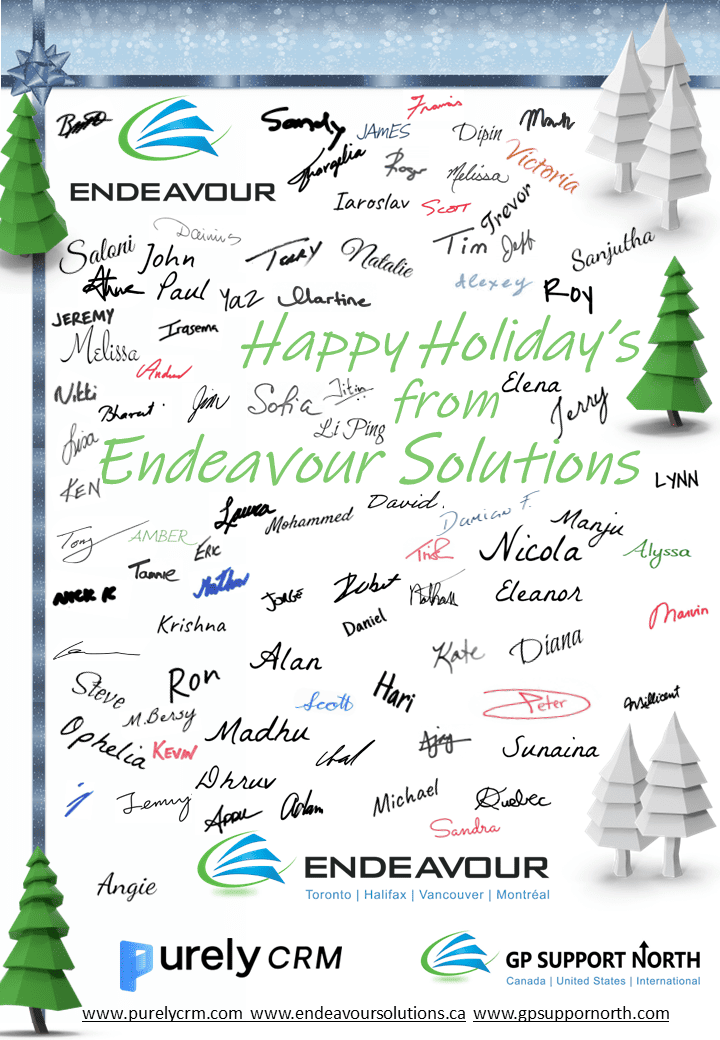 Francis
Sandy
JAMES
Dipin
Mark
ENDEAVOUR
Georgelia
Roger
Melissa
Victoria
Iaroslav
Scott
Trevor
Dainius
Saloni
John
Terry
Natalie
Tim
Jeff
Sanjutha
Paul
Yaz
Martine
Alexey
Roy
JEREMY
Irasema
Melissa
Happy Holiday's
Andrew
Nikki
Bharat
Jim
Sofia
Jitin
from
Elena
Jerry
Lisa
Li Ping
Endeavour Solutions
KEN
LYNN
Laura
Mohammed
David.
Damian F.
Manju
Tony
AMBER
ERIC
Trish
Nicola
Alyssa
Tannie
Matthew
NICK K
JORGE
Robert
Nathan
Eleanor
Krishna
Daniel
Marvin
Alan
Kate
Diana
Steve
Ron
Scott
Hari
Peter
Millicent
M.Bersy
Ophelia
Kevin
Madhu
Ajay
Sunaina
Dhruv
Jenny
Appu
Adam
Michael
Quebec
Sandra
ENDEAVOUR
Toronto | Halifax | Vancouver | Montréal
Angie
Purely CRM
GP SUPPORT NORTH
Canada | United States | International
www.purelycrm.com www.endeavoursolutions.ca www.gpsuppornorth.com